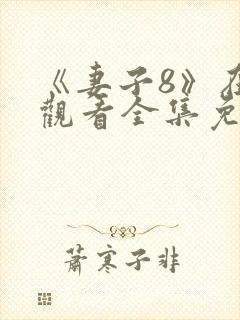 《妻子8》在
觀看全集免
蕭寒子非